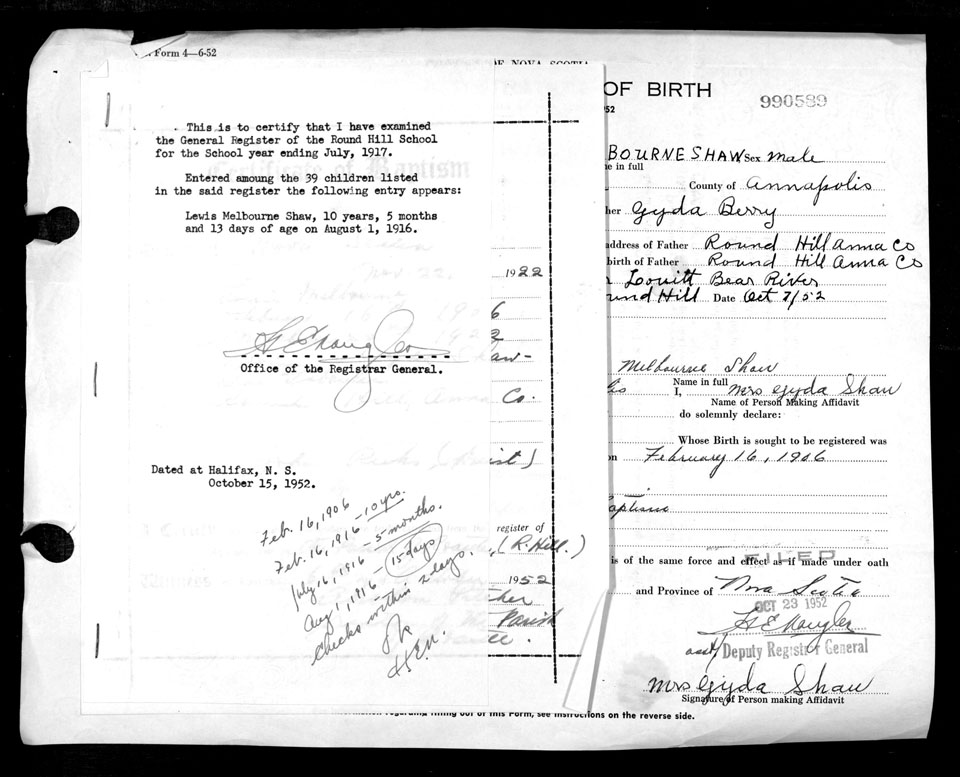 Form 4—6-52
This is to certify that I have examined
the General Register of the Round Hill School
for the School year ending July, 1917.
Entered amoung the 39 children listed
in the said register the following entry appears:
Lewis Melbourne Shaw, 10 years, 5 months
and 13 days of age on August 1, 1916.
Office of the Registrar General.
Dated at Halifax, N. S.
October 15, 1952.
Feb. 16, 1906
Feb. 16, 1916 – 10 yrs.
July 16, 1916 – 5 months.
Aug 1, 1916 – 15 days
Checks within 2 days.
ok
H.E.M.
Certificate of Baptism
1922
6
2
aw-
Co.
ist)
register of
(R. Hill.)
1952
Parish
OF NOVA SCOTIA
OF BIRTH
990589
52
BOURNE SHAW Sex male
e in full
County of Annapolis
her Gyda Berry
address of Father Round Hill Anna Co
birth of Father Round Hill Anna Co
Lovitt Bear River
und Hill Date Oct 7/52
Melbourne Shaw
Name in full
I, Mrs Gyda Shaw
Name of Person Making Affidavit
do solemnly declare:
Whose Birth is sought to be registered was
on February 16, 1906
aptism
is of the same force and effect as if made under oath
FILED
and Province of Nova Scotia
OCT 23 1952
asst/ Deputy Registrar General
Mrs Gyda Shaw
Signature of Person making Affidavit
regarding filling out of this Form, see instructions on the reverse side.